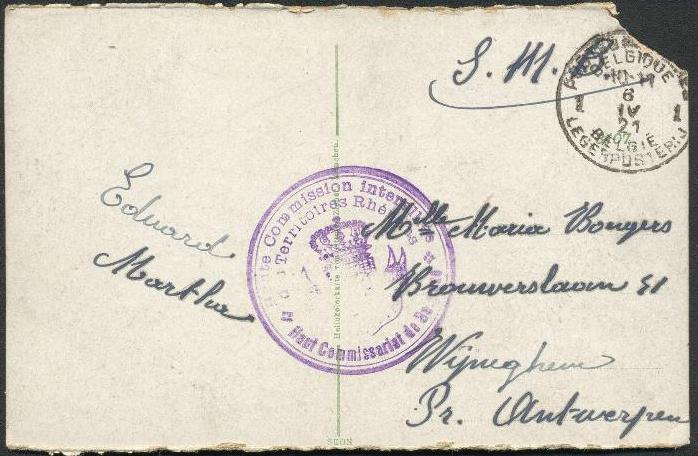 S. M.
BELGIQUE
6
IV
21
BELGIË
LEGERPOSTERIJ
1 1
Eduard
Martha
Commission interalliée
Territoires Rhénans
Haut Commissariat de
Melle Maria Bongers
Brouwerslaan 51
Wijneghem
Pr. Antwerpen
SEON